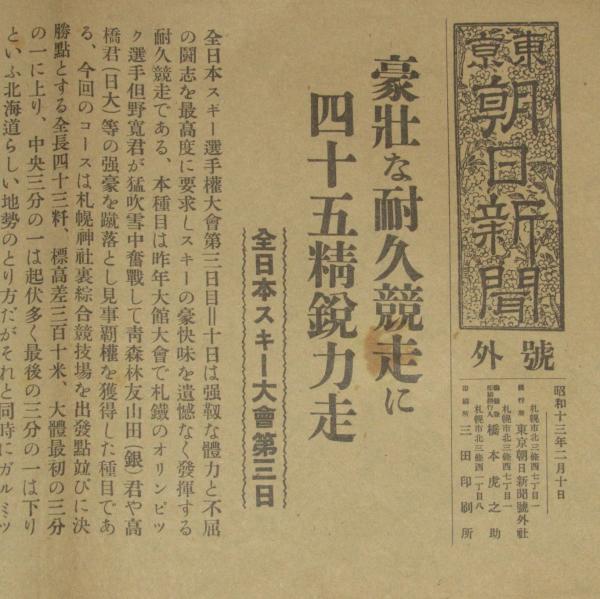 東京
朝日新聞
號外
昭和十三年二月十日
札幌市北三條西七丁目一
發行所 東京朝日新聞號外社
札幌市北三條西七丁目一
橋本虎之助
札幌市北三條西一丁目八
印刷所 三田印刷所
豪壯な耐久競走に
四十五精銳力走
全日本スキー大會第三日
全日本スキー選手權大會第三日目‖十日は强靱な體力と不屈
の鬪志を最高度に要求しスキーの豪快味を遺憾なく發揮する
耐久競走である、本種目は昨年大館大會で札鐵のオリンピツ
ク選手但野寬君が猛吹雪中奮戰して靑森林友山田(銀)君や高
橋君(日大)等の强豪を蹴落とし見事覇權を獲得した種目であ
る、今回のコースは札幌神社裏綜合競技場を出發點竝びに決
勝點とする全長四十三粁、標高差三百十米、大體最初の三分
の一に上り、中央三分の一は起伏多く最後の三分の一は下り
といふ北海道らしい地勢のとり方だがそれと同時にガルミツ